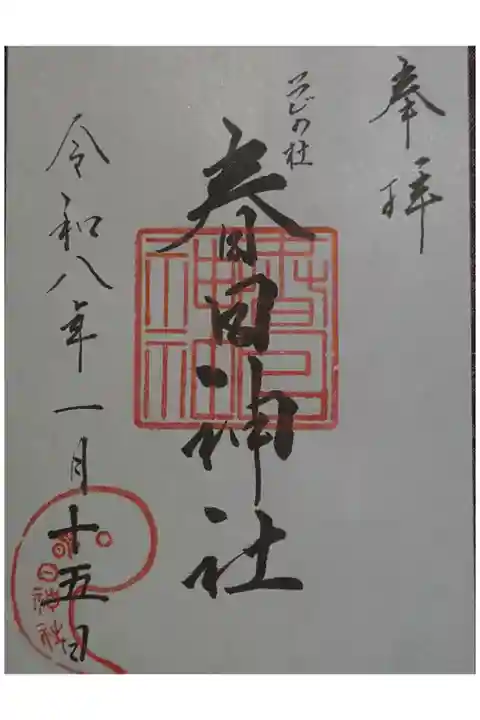 奉拝
えびの社
春日神社
春日神社
令和八年一月十五日
春日神社